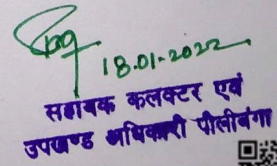 18.01-2022
सहायक कलक्टर एवं
उपखण्ड अधिकारी पीलीबंगा